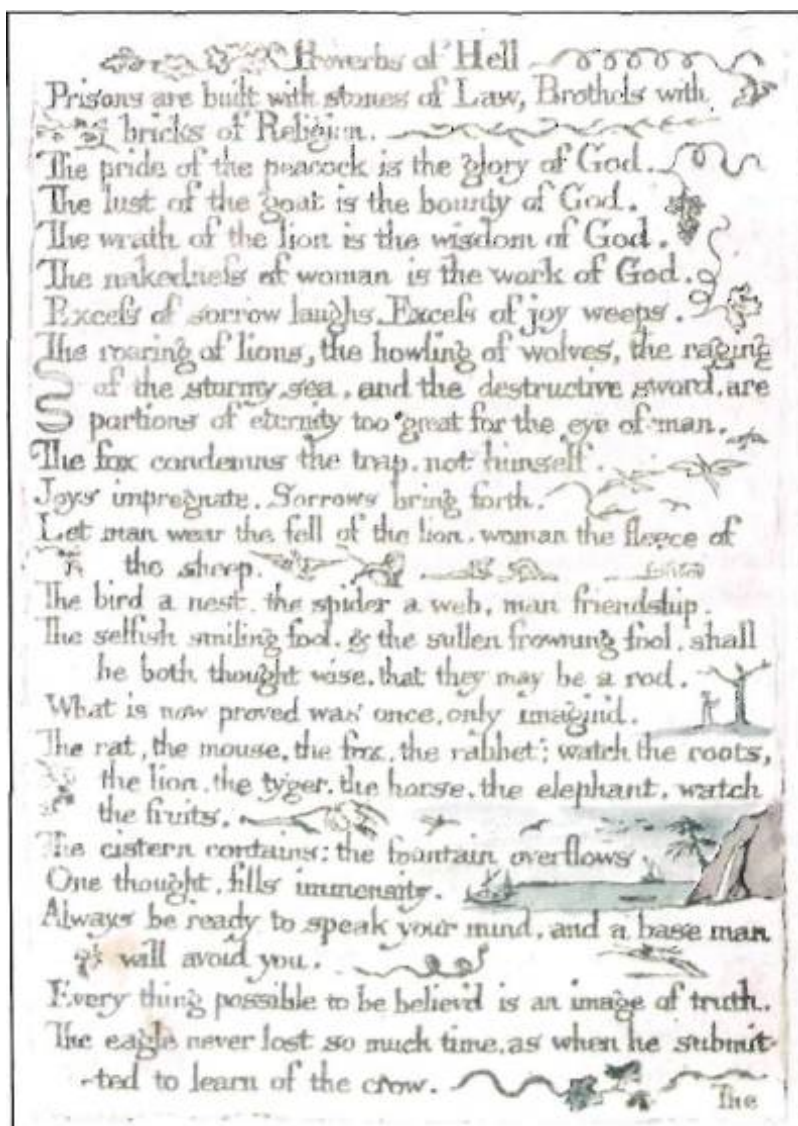 Proverbs of Hell
Prisons are built with stones of Law, Brothels with
bricks of Religion.
The pride of the peacock is the glory of God.
The lust of the goat is the bounty of God.
The wrath of the lion is the wisdom of God.
The nakedneſs of woman is the work of God.
Exceſs of sorrow laughs. Exceſs of joy weeps.
The roaring of lions, the howling of wolves, the raging
of the stormy sea, and the destructive sword, are
portions of eternity too great for the eye of man.
The fox condemns the trap, not himself.
Joys impregnate. Sorrows bring forth.
Let man wear the fell of the lion, woman the fleece of
the sheep.
The bird a nest, the spider a web, man friendship.
The selfish smiling fool, & the sullen frowning fool, shall
be both thought wise, that they may be a rod.
What is now proved was once, only imagin'd.
The rat, the mouse, the fox, the rabbet; watch the roots,
the lion, the tyger, the horse, the elephant, watch
the fruits.
The cistern contains: the fountain overflows
One thought, fills immensity.
Always be ready to speak your mind, and a base man
will avoid you.
Every thing possible to be believ'd is an image of truth.
The eagle never lost so much time, as when he submit-
-ted to learn of the crow.
The